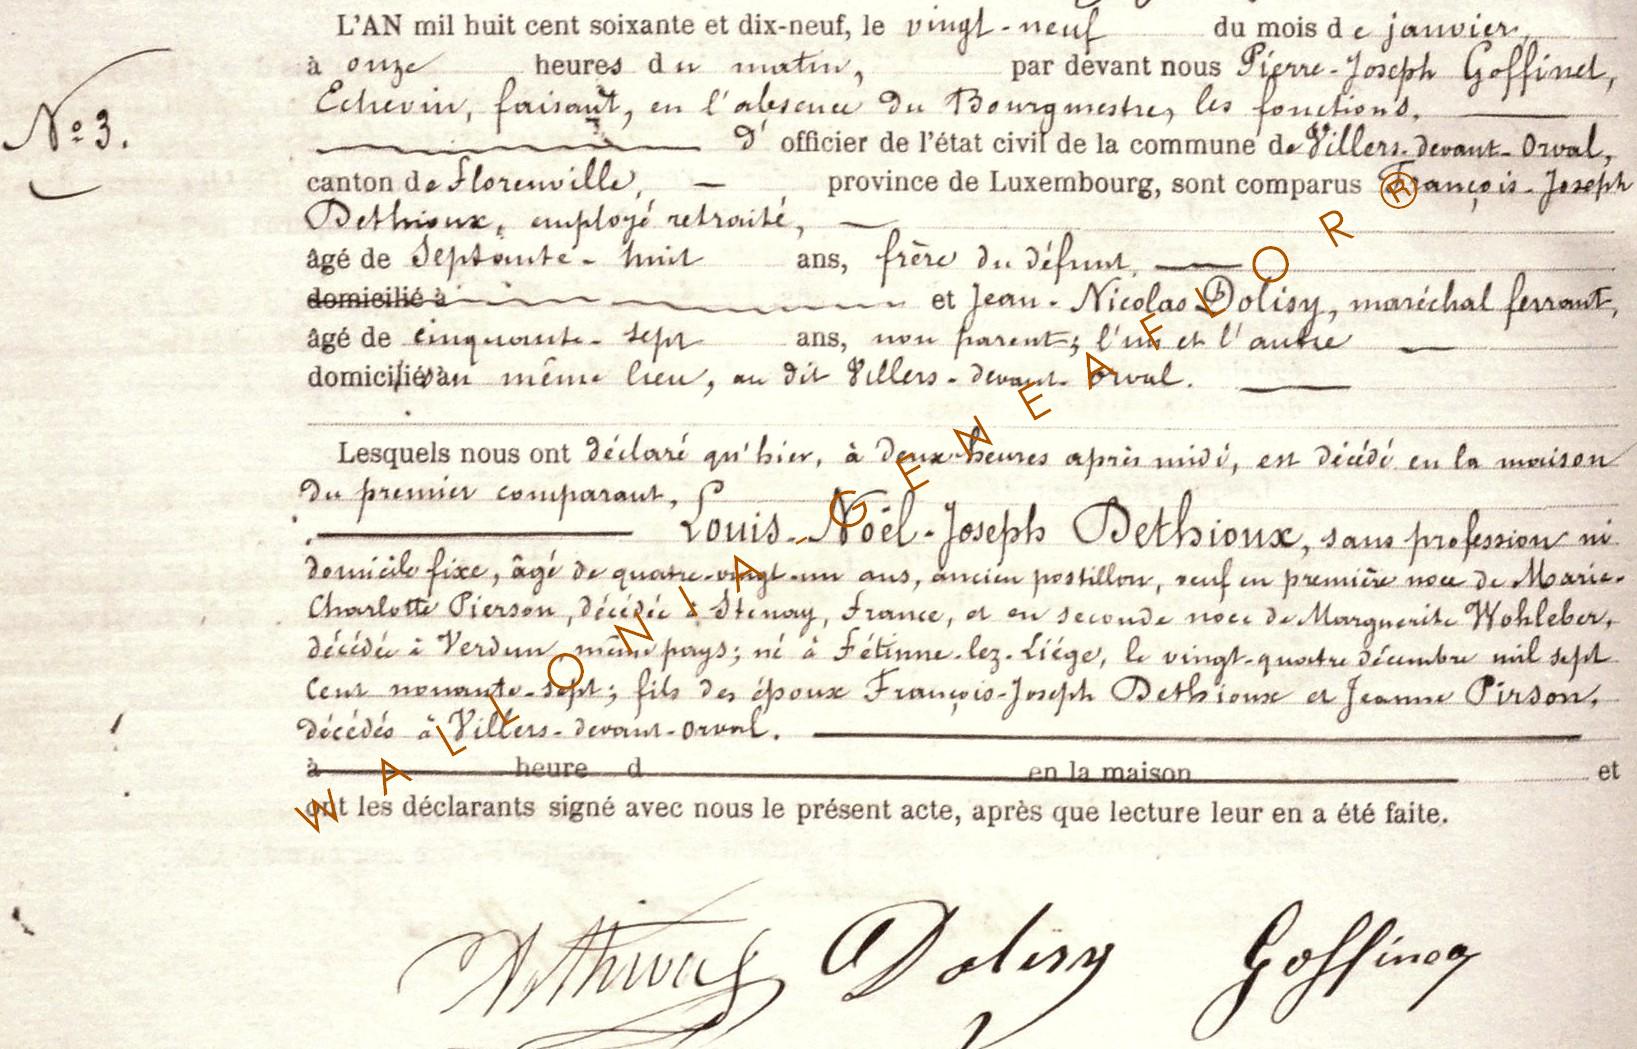 L'AN mil huit cent soixante et dix-neuf, le vingt-neuf du mois de janvier,
à onze heures du matin, par devant nous Pierre-Joseph Goffinet,
Echevin, faisant, en l'absence du Bourgmestre, les fonctions,
N° 3.
d' officier de l'état civil de la commune de Villers-devant-Orval,
canton de Florenville, — province de Luxembourg, sont comparus François-Joseph
Dethioux, employé retraité, —
âgé de Septante-huit ans, frère du défunt, —
domicilié à et Jean-Nicolas Dolisy, maréchal ferrant,
âgé de cinquante-sept ans, non parent; l'un et l'autre —
domiciliés au même lieu, au dit Villers-devant-Orval. —
Lesquels nous ont déclaré qu'hier, à deux heures après midi, est décédé en la maison
du premier comparant,
Louis-Noël-Joseph Dethioux, sans profession ni
domicile fixe, âgé de quatre-vingt-un ans, ancien postillon, veuf en première noce de Marie-
Charlotte Pierson, décédée à Stenay, France, et en seconde noce de Marguerite Wohleber,
décédée à Verdun, même pays; né à Fétinne-lez-Liége, le vingt-quatre décembre mil sept
cent nonante-sept; fils des époux François-Joseph Dethioux et Jeanne Pirson,
décédés à Villers-devant-Orval.
à heure d en la maison et
ont les déclarants signé avec nous le présent acte, après que lecture leur en a été faite.
Dethioux Dolisy Goffinet
WALLONIA-GENEAFLOR®